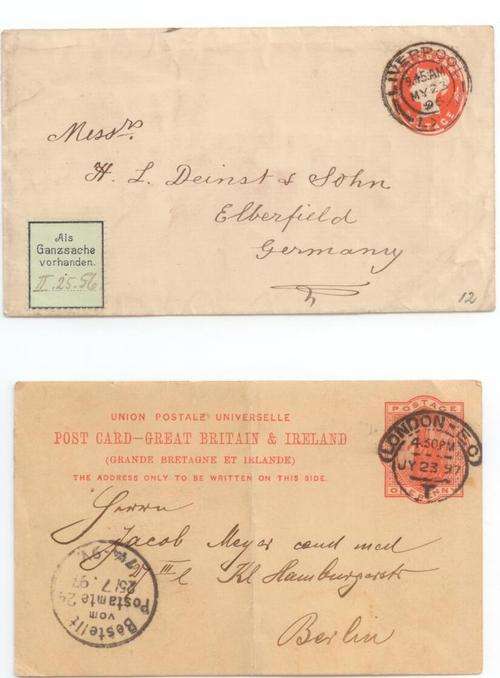 LIVERPOOL
9.45AM
MY 23
Messrs
H. L. Deinst & Sohn
Elberfield
Germany
Als
Ganzsache
vorhanden.
II.25.56
12
UNION POSTALE UNIVERSELLE
POST CARD-GREAT BRITAIN & IRELAND
(GRANDE BRETAGNE ET IRLANDE)
THE ADDRESS ONLY TO BE WRITTEN ON THIS SIDE.
POSTAGE
LONDON-E.C
4.30PM
JY 23 97
T
ONE PENNY
Herrn
Jacob Meyer cand med
Kl Hamburgerstr
Berlin
Bestellt
vom
Postamte 24
25/7.97